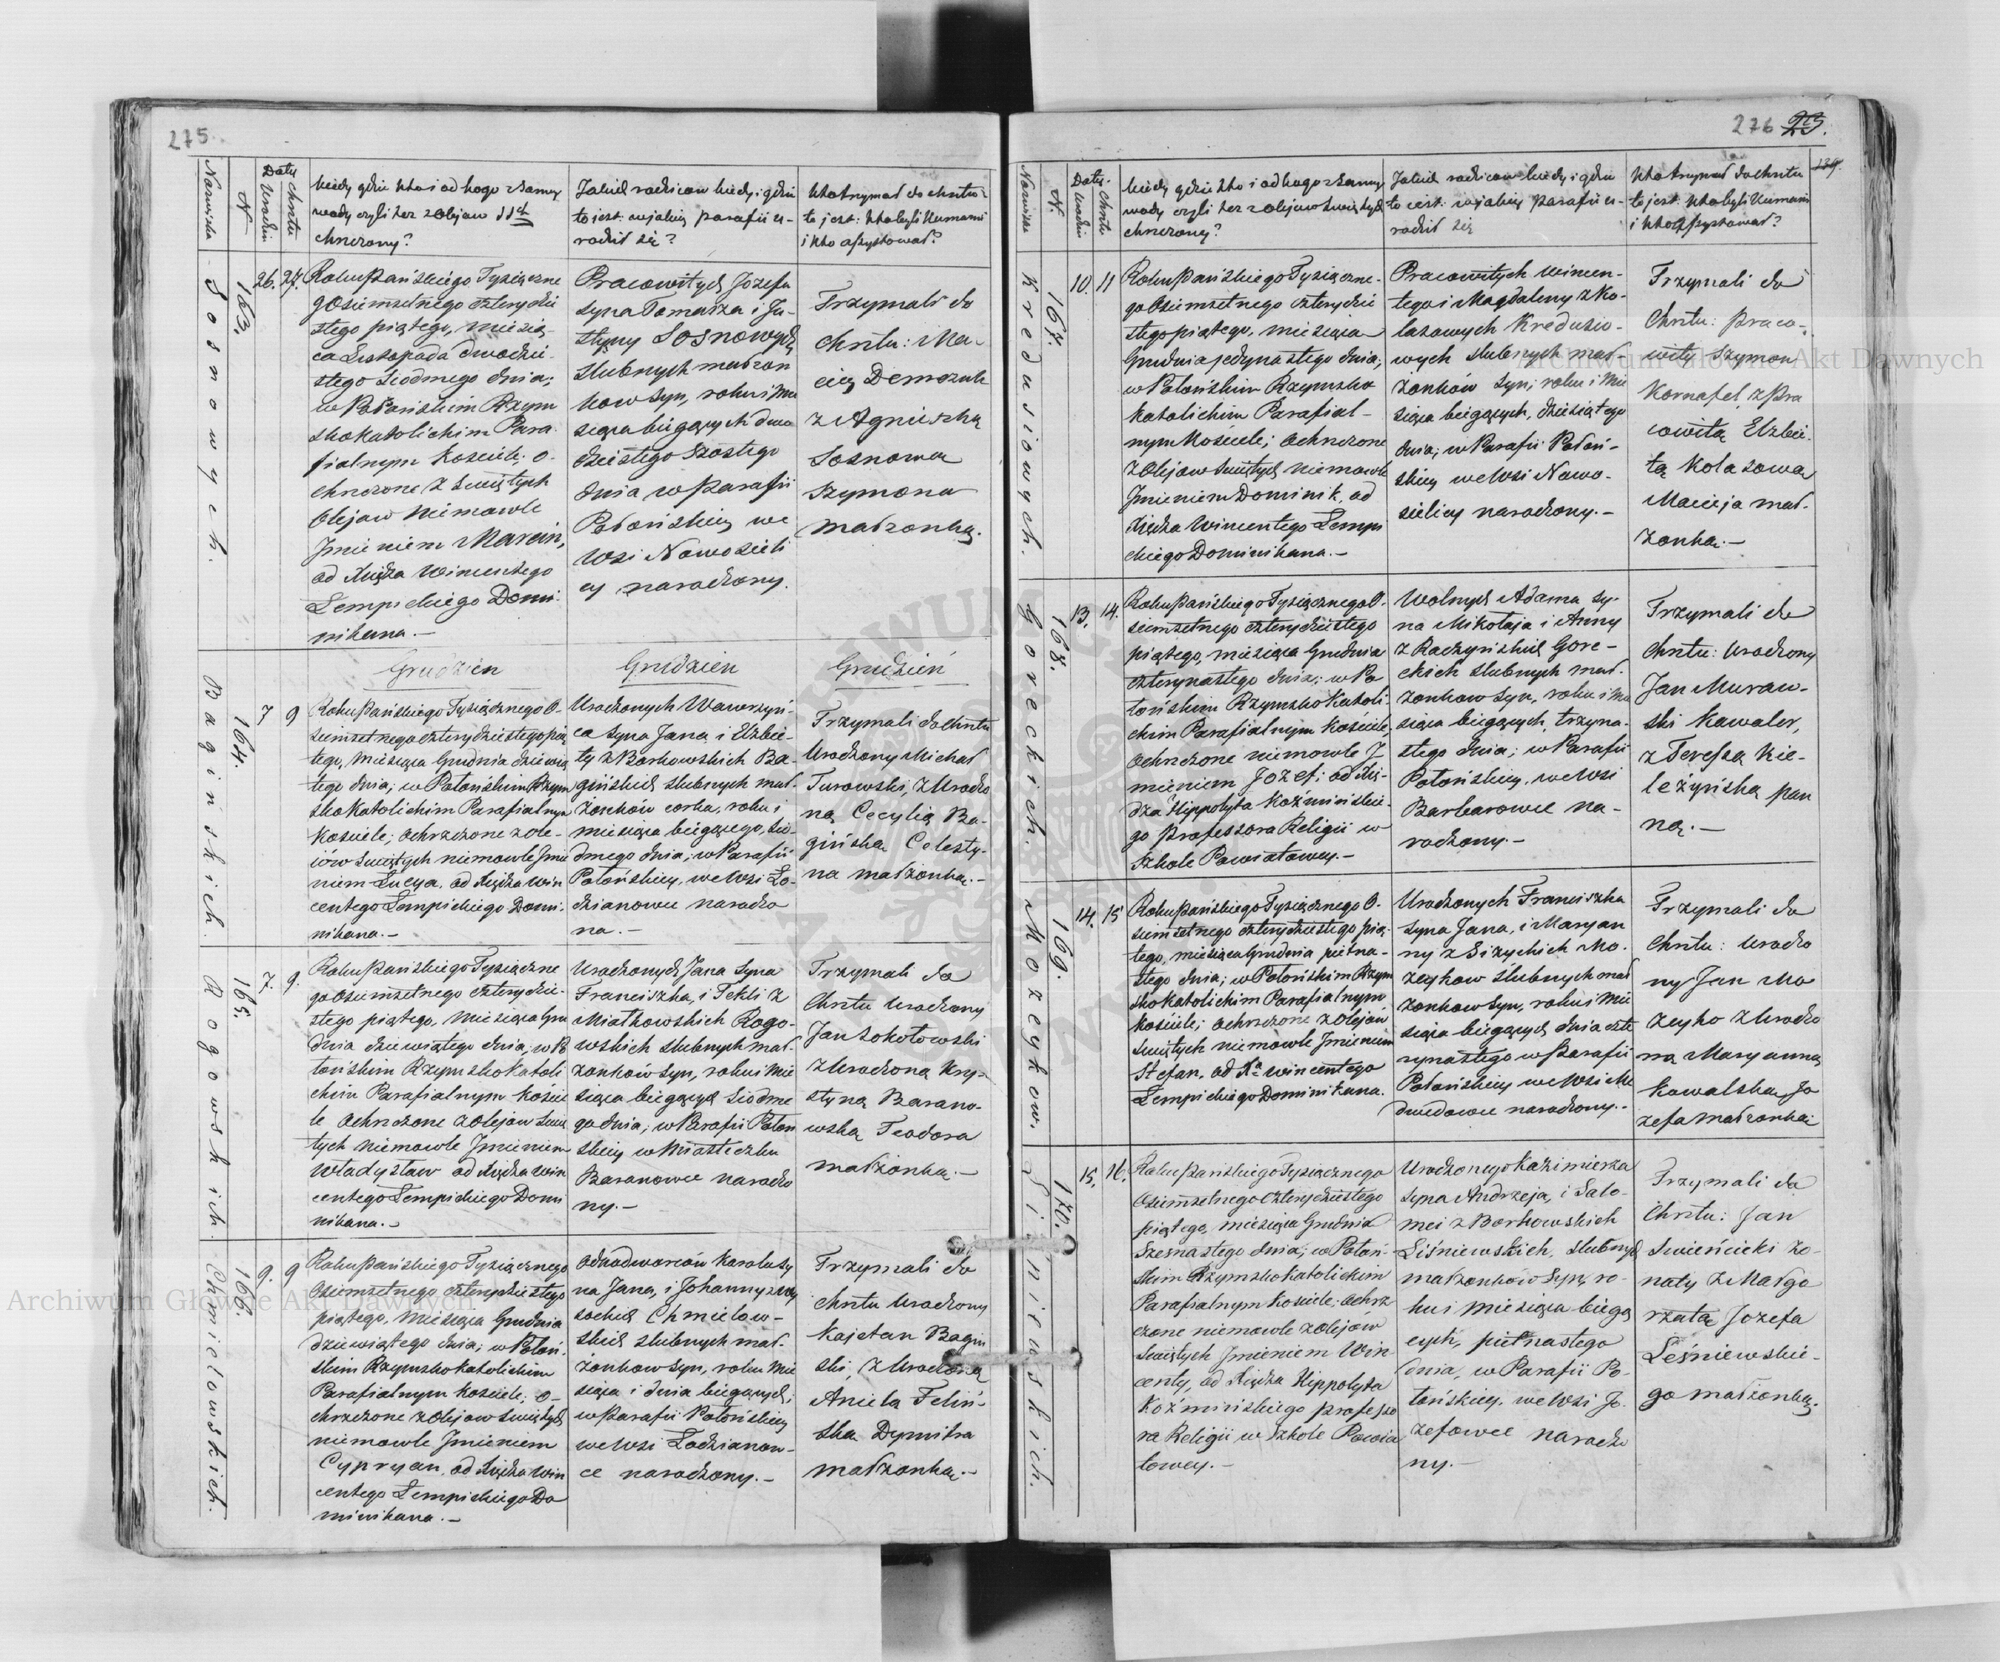 275
Nazwiska
N.
Daty
Urodzin
Chrztu
kiedy gdzie kto i od kogo z Samey
wody czyli też z olejow SSch
chrzczony?
Jakich rodzicow kiedy i gdzie
to jest: w jakiey parafii u-
rodził się?
kto trzymał do chrztu
to jest: kto byli Kumami
i kto assystował?
Sosnowych.
163.
26. 27.
Roku Pańskiego Tysiączne
go Osiemsetnego czterydzie
stego piątego, miesią
ca Listopada dwudzie-
stego siódmego dnia;
w Połańskim Rzym
sko Katolickim Para-
fialnym Kosciele; o-
chrzczone z Swiętych
Olejow niemowle
Jmieniem Marcin,
od Xiędza Wincentego
Lempickiego Domi-
nikana. -
Pracowitych Jozefa
syna Tomasza i Ju-
styny Sosnowych
slubnych małżon
kow syn, roku i mie
siąca bieżących dwu
dziestego szostego
dnia w Parafii
Połońskiey we
Wsi Nowosieli
cy narodzony.
Trzymali do
chrztu: Ma-
ciey Demczuk
z Agnieszką
Sosnowa
Szymona
małżonką.
Grudzien
Grudzien
Grudzień
Baginskich.
164.
7 9
Roku Pańskiego Tysiącznego O-
siemsetnego czterydziestego pią
tego, miesiąca Grudnia dziewią
tego dnia; w Połońskim Rzym
sko Katolickim Parafialnym
Kosciele; ochrzczone z ole-
iów swiętych niemowle Jmie
niem Lucya, od Xiędza Win
centego Lempickiego Domi-
nikana. -
Urodzonych Wawrzyń-
ca syna Jana i Elzbie-
ty z Borkowskich Ba-
gińskich slubnych mał-
żonków corka, roku i
miesiąca bieżącego, sio-
dmego dnia; w Parafii
Połońskiey, we Wsi Ło-
dzianowce narodzo
na. -
Trzymali do chrztu
Urodzony Michał
Turowski, z Urodzo
ną Cecylią Ba-
gińska Celesty-
na małżonką. -
Rogowskich.
165.
7. 9.
Roku Pańskiego Tysiączne
go Osiemsetnego czterydzie-
stego piątego, miesiąca Gru
dnia dziewiątego dnia; w Po
łońskim Rzymsko Katoli
ckim Parafialnym Koście
le ochrzczone z Olejow Swię
tych niemowle Jmieniem
Władysław od Xiędza Win
centego Lempickiego Domi
nikana. -
Urodzonych Jana syna
Franciszka, i Tekli z
Miałkowskich Rogo-
wskich slubnych mał-
żonków syn, roku i mie
siąca bieżących siodme
go dnia; w Parafii Połon
skiey w Miasteczku
Baranowce narodzo
ny. -
Trzymali do
Chrztu Urodzony
Jan Sokołowski
z Urodzoną Kry-
styną Barano-
wską Teodora
małżonką. -
Chmielowskich.
166.
9. 9
Roku Pańskiego Tysiącznego
Osiemsetnego czterydziestego
piątego, miesiąca Grudnia
dziewiątego dnia; w Połoń-
skim Rzymsko Katolickim
Parafialnym Kosciele; o-
chrzczone z Olejow Swiętych
niemowle Jmieniem
Cypryan, od Xiędza Win
centego Lempickiego Do
minikana. -
Odnodworców Karola sy
na Jana, i Johanny z Wy
sockich Chmielow-
skich slubnych mał-
żonkow syn, roku mie
siąca i dnia bieżących;
w Parafii Połońskiey
we Wsi Łodzianow-
ce narodzony. -
Trzymali do
chrztu Urodzony
Kajetan Bagin
ski, z Urodzoną
Anielą Feliń-
ska Dymitra
małżonką. -
276 25.
139.
Nazwiska
N.
Daty.
Urodzin
Chrztu
kiedy gdzie kto i od kogo z Samey
wody czyli też z olejow Swiętych
chrzczony?
Jakich rodzicow kiedy i gdzie
to iest: w jakiey parafii u-
rodził się
kto trzymał do chrztu
to jest: kto byli Kumami
i kto assystował?
Kredusiowych.
167.
10. 11
Roku Pańskiego Tysiączne-
go Osiemsetnego czterydzie
stego piątego, miesiąca
Grudnia jedynastego dnia;
w Połońskim Rzymsko
Katolickim Parafial-
nym Kosciele; ochrzczone
z Olejow Swiętych niemowle
Jmieniem Dominik, od
Xiędza Wincentego Lempi
ckiego Dominikana. -
Pracowitych Wincen-
tego i Magdaleny z Ko-
lasowych Kredusio-
wych slubnych mał-
żonków syn; roku i mie
siąca bieżących, dziesiątego
dnia; w Parafii Połoń-
skiey we Wsi Nowo-
sielicy narodzony. -
Trzymali do
Chrztu: praco-
wity Szymon
Kornafel, z Pra
cowitą Elżbie-
tą Kolasową
Macieja mał-
żonką. -
Goreckich.
168.
13. 14.
Roku Pańskiego Tysiącznego O-
siemsetnego czterydziestego
piątego, miesiąca Grudnia
czternastego dnia; w Po
łońskim Rzymsko Katoli-
ckim Parafialnym Kosciele,
ochrzczone niemowle J
mieniem Jozef; od Xię-
dza Hippolyta Koźmińskie-
go Professora Religii w
Szkole Powiatowey. -
Wolnych Adama sy-
na Mikołaja i Anny
z Raczyńskich Gore-
ckich slubnych mał-
żonkow syn, roku i mie
siąca bieżących, trzyna-
stego dnia; w Parafii
Połońskiey, we Wsi
Barbarowce na-
rodzony. -
Trzymali do
chrztu: Urodzony
Jan Muraw-
ski Kawaler,
z Teressą Kie-
leżyńską pan
ną. -
Mozeykow.
169.
14. 15
Roku Pańskiego Tysiącznego O-
siemsetnego czterydziestego pią-
tego, miesiąca Grudnia piętna-
stego dnia; w Połońskim Rzym
sko Katolickim Parafialnym
Kościele; ochrzczone z Olejów
Swiętych niemowle Jmieniem
Stefan, od Xa Wincentego
Lempickiego Dominikana.
Urodzonych Franciszka
syna Jana, i Maryan
ny z Sizyckich Mo-
zeykow slubnych mał
żonkow syn, roku i mie
siąca bieżących dnia czte
rynastego w Parafii
Połońskiey we Wsi Me
dwedowce narodzony. -
Trzymali do
Chrztu: Urodzo
ny Jan Mo
zeyko z Urodzo
ną Maryanną
Kowalską Jo
zefa małżonką.
Liśniewskich.
170.
15. 16.
Roku Pańskiego Tysiącznego
Osiemsetnego czterydziestego
piątego, miesiąca Grudnia
Szesnastego dnia; w Połoń-
skim Rzymsko Katolickim
Parafialnym Kosciele; ochrz
czone niemowle z Olejow
Swiętych Jmieniem Win
centy, od Xiędza Hippolyta
Koźmińskiego professo
ra Religii w Szkole Powia
towey. -
Urodzonego Kazimierza
syna Andrzeja, i Salo-
mei z Borkowskich
Liśniewskich, slubnych
małżonków syn, ro-
ku i miesiąca bieżą
cych, piętnastego
dnia, w Parafii Po-
łońskiey, we Wsi Jo-
zefowce narodzo
ny. -
Trzymali do
Chrztu: Jan
Swieńcicki żo-
naty z Małgo
rzatą Jozefa
Leśniewskie-
go małżonką.
Archiwum Główne Akt Dawnych
Archiwum Główne Akt Dawnych